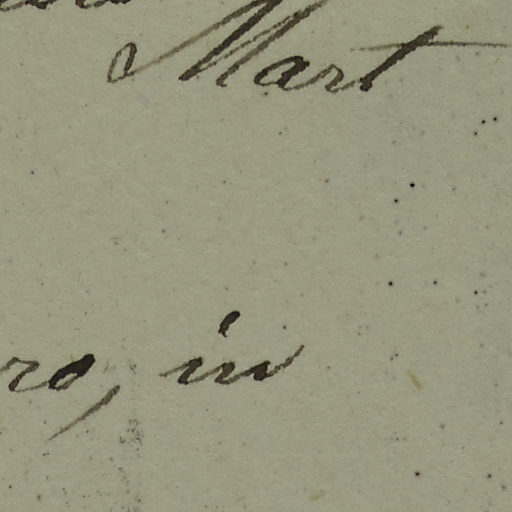 Mart
ro, in